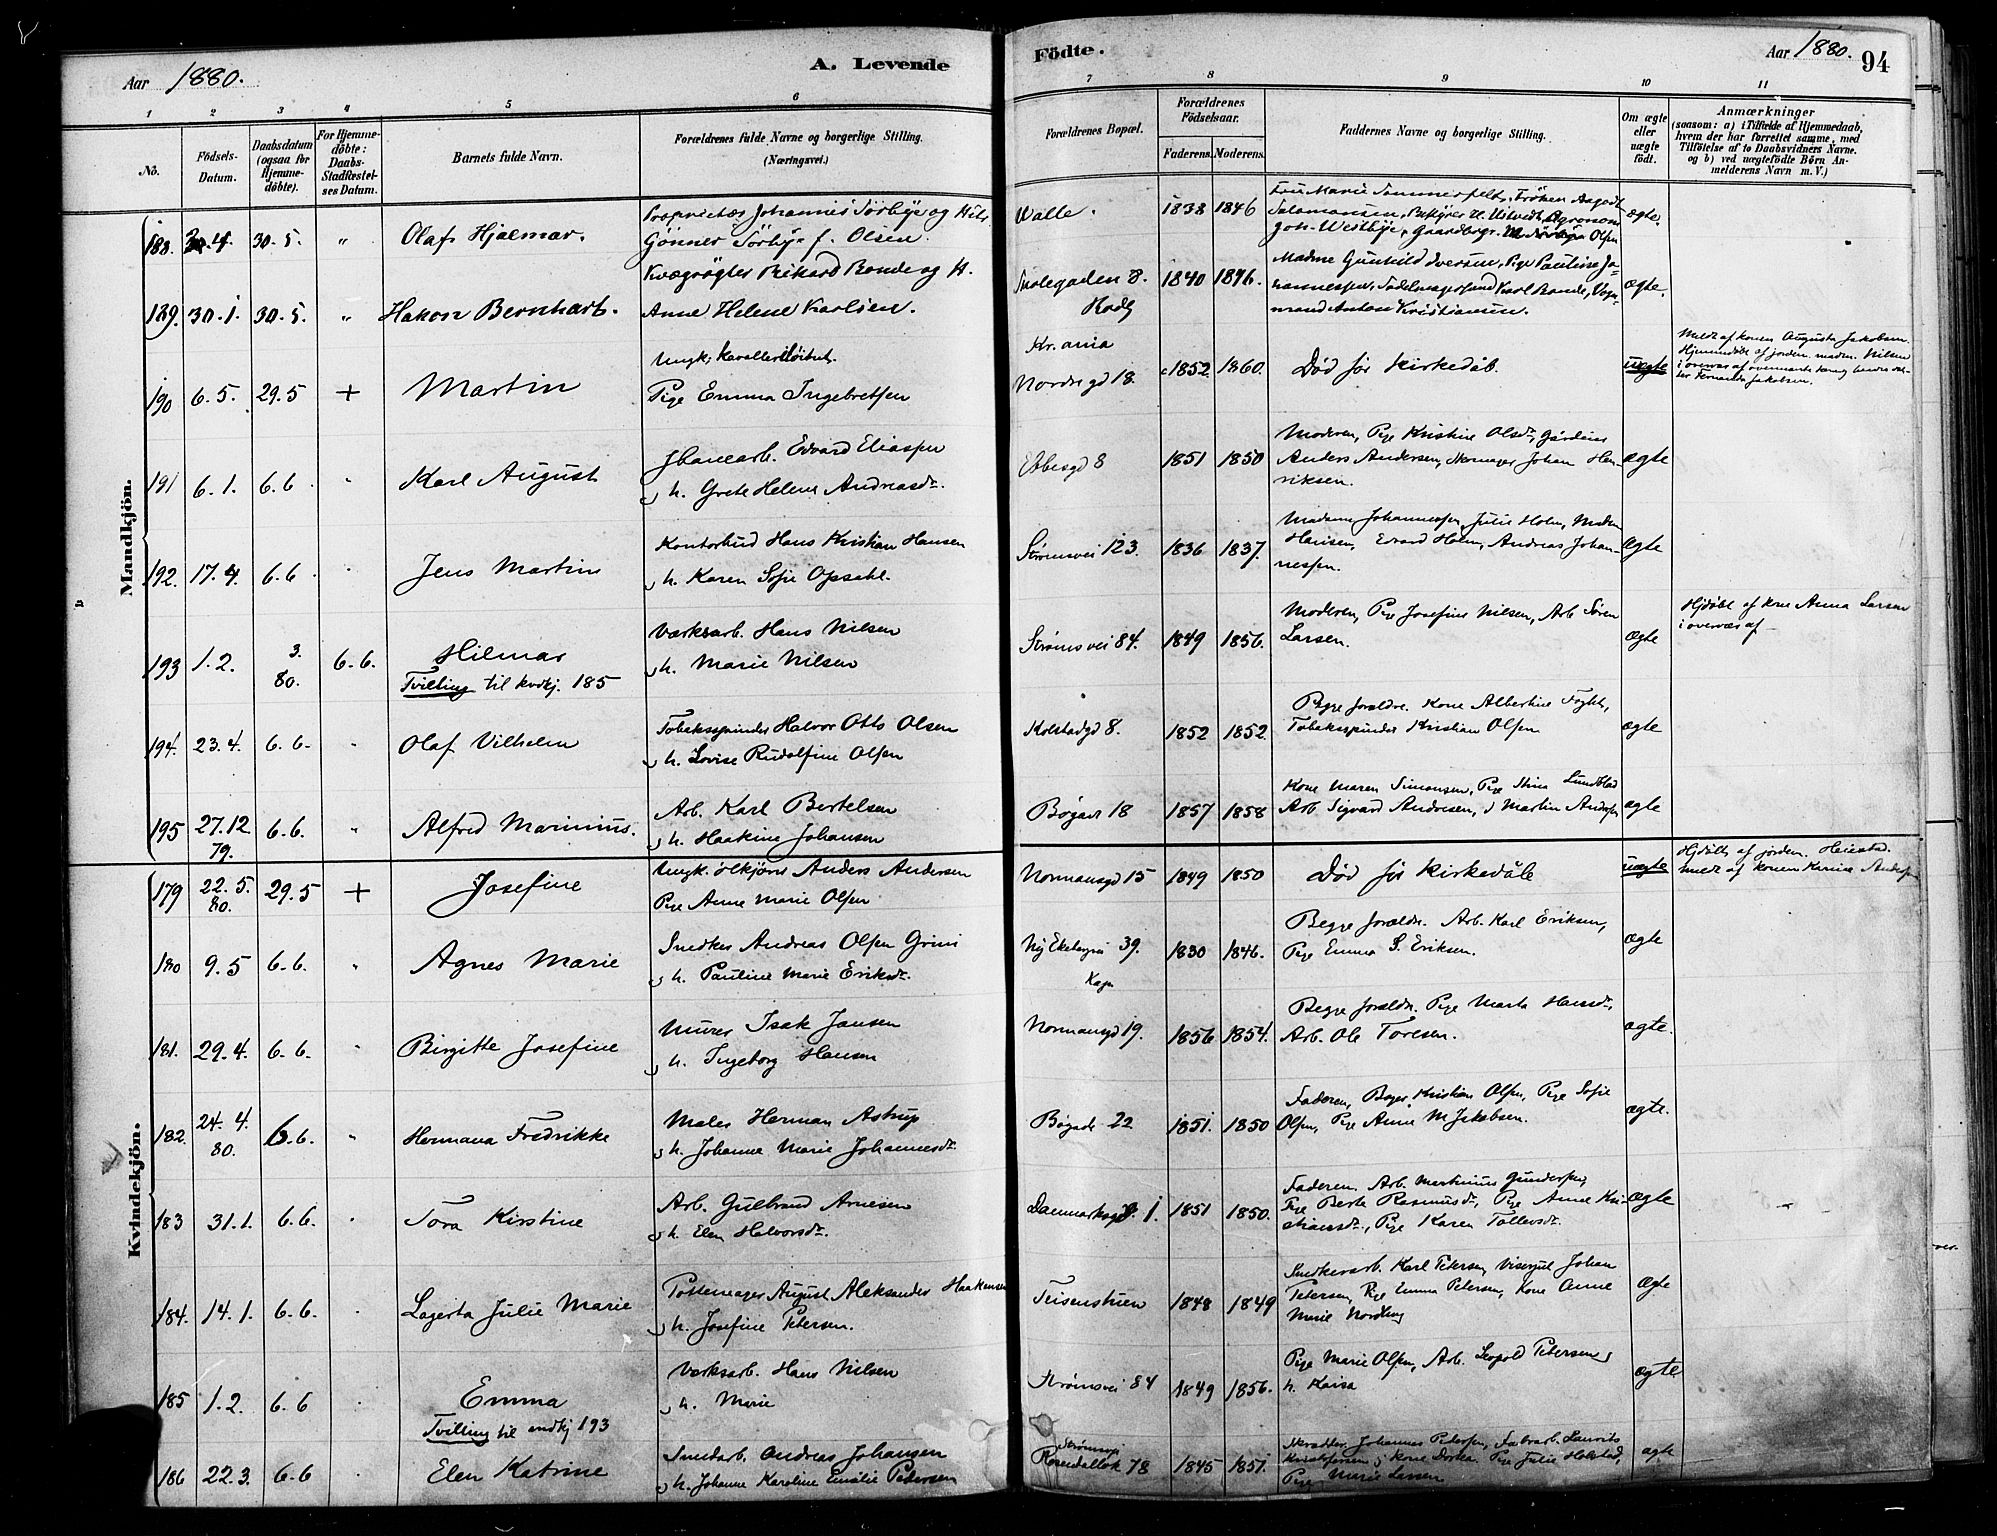 Aar 1880.
A. Levende
Födte.
Aar 1880.
94
1 2 3 4 5 6 7 8 9 10 11
No.
Födsels-Datum.
Daabsdatum (ogsaa for Hjemme-döbte).
For Hjemme-döbte: Daabs-Stadfæstel-ses Datum.
Barnets fulde Navn.
Forældrenes fulde Navne og borgerlige Stilling.
(Næringsvei.)
Forældrenes Bopæl.
Forældrenes Födselsaar.
Faderens. Moderens.
Faddernes Navne og borgerlige Stilling.
Om ægte eller uægte födt.
Anmærkninger
(saasom: a) i Tilfælde af Hjemmedaab,
hvem der har forrettet samme, med
Tilföielse af to Daabsvidners Navne.
og b) ved uægtefödte Börn An-
melderens Navn m. V.)
Mandkjön.
188. 4. 30.5. " Olaf Hjalmar.
Proprietær Johannes Sörbye og
Gönner Sörbye f. Olsen.
Walle. 1838 1846
Fru Marie Sommerfelt, Fröken
Salamonsen, Agronom
Joh. Westbye, Olsen
ægte.
129. 30.1. 30.5. " Hakon Bernhart.
Kvægrögter Rikard Bonde og H.
Anne Helene Karlsen.
Smalegaden 8. 1840 1846.
Madme Gunhild Iversen, Pige Pauline Jo-
hannessen, Karl Bonde, Vogn-
mand Anton Kristiansen.
ægte.
190 6.5. 29.5 + Martin
Ungk.
Pige Emma Ingebretsen
Kr.ania
Nordregd 18. 1852. 1860. Död för Kirkedåb. uægte
Meldt af konen Augusta Jakobsen.
Hjemmedöbt af jordm. madm. Nilsen
191 6.1. 6.6. " Karl August
Edvard Eliassen
og h. Grete Helene Andreasdr.
Ebbesgd 8 1851 1850
Moderen, Pige Kristine Olsdr,
Anders Andersen, Johan Hen-
riksen.
ægte
192. 17.4. 6.6. " Jens Martin
Kontorbud Hans Kristian Hansen
og h. Karen Sofie Opsahl.
Strömsvei 123. 1836 1837.
Madame Johannessen, Julie Holm, Madm
Hansen, Edvard Holm, Andreas Johan-
nessen.
ægte
193 1.2. 3. 80. 6.6. Hilmar
Tvilling til kvdkj. 185
Værksarb. Hans Nilsen
og h. Marie Nilsen
Strömsvei 84. 1849 1856.
Moderen, Pige Josefine Nilsen, Arb. Sören
Larsen.
ægte
Hjdöbt af kone Anna Larsen
i overvær af
194. 23.4. 6.6. " Olaf Vilhelm
Tobaksspinder Halvor Otto Olsen
og h. Lovise Rudolfine Olsen
Kolstadgd 8. 1852 1852.
Begge foraldre. Kone Albertine
Tobaksspinder Kristian Olsen
ægte
195 27.12. 79. 6.6. " Alfred Marinius.
Arb. Karl Bertelsen
og h. Haakine Johansen
Bögadr 18 1857 1858
Kone Maren Simonsen, Pige Stina Lundblad
Arb. Sigvard Andresen, Martin Andersen
ægte
Kvindekjön.
179 22.5. 80. 29.5 + Josefine
Ungk. ölkjörer Anders Andersen
Pige Anne Marie Olsen
Normansgd 15 1849 1850 Död för Kirkedåb uægte
Hjdöbt af jordm.
meldt af konen Karine Andersen
180 9.5 6.6. " Agnes Marie
Snedker Andreas Olsen Grini
og h. Pauline Marie Eriksdr.
Ny Ekebergvei 39. 1830 1846.
Begge foraldr. Arb. Karl Eriksen,
Pige Emma S. Eriksen.
ægte
181. 29.4. 6.6. " Birgitte Josefine
Murer Isak Jansen
og h. Ingeborg Hansen
Normansgd 19. 1856 1854.
Begge foraldr. Pige Marta Hansdr,
Arb. Ole Toresen.
ægte.
182. 24.4. 80. 6.6. " Hermana Fredrikke
Maler Herman Astrup
og h. Johanne Marie Johannesdr.
Bögade 22 1851. 1850
Faderen, Bager Kristian Olsen, Pige Sofie
Olsen, Pige Anne M Jakobsen.
ægte.
183 31.1. 6.6. " Tora Kirstine
Arb. Gulbrand Arnesen
og h. Elen Halvorsdr.
Danmarksgd. 1. 1851 1850.
Faderen, Arb. Martinius Gundersen,
Pige Berte Rasmusdr, Pige Anne Kri-
stiansdr., Pige Karen Tollevsdr.
ægte
184. 14.1. 6.6. " Lagerta Julie Marie
Pottemager August Aleksander Haakensen
og h. Josefine Petersen.
Teisenstuen 1848 1849
Snedkerarb. Karl Petersen, Johan
Petersen, Pige Emma Petersen, Kone Anne
Marie Nordberg
ægte
185 1.2. 6.6 " Emma
Tvilling til mdkj 193
Værksarb. Hans Nilsen
og h. Marie
Strömsvei 84 1849 1856.
Pige Marie Olsen, Arb. Leopold Petersen og
h. Kaisa
ægte
186 22.3. 6.6 " Elen Katrine
Smedarb. Andreas Johansen
og h. Johanne Karoline Emilie Pedersen
Strömsvei
Rosendallök 78 1845 1851.
Skrædder Johannes Pedersen, Fabrarb. Laurits
Kristoffersen og kone Dorka. Pige Julie
Pige Marie Larsen
ægte